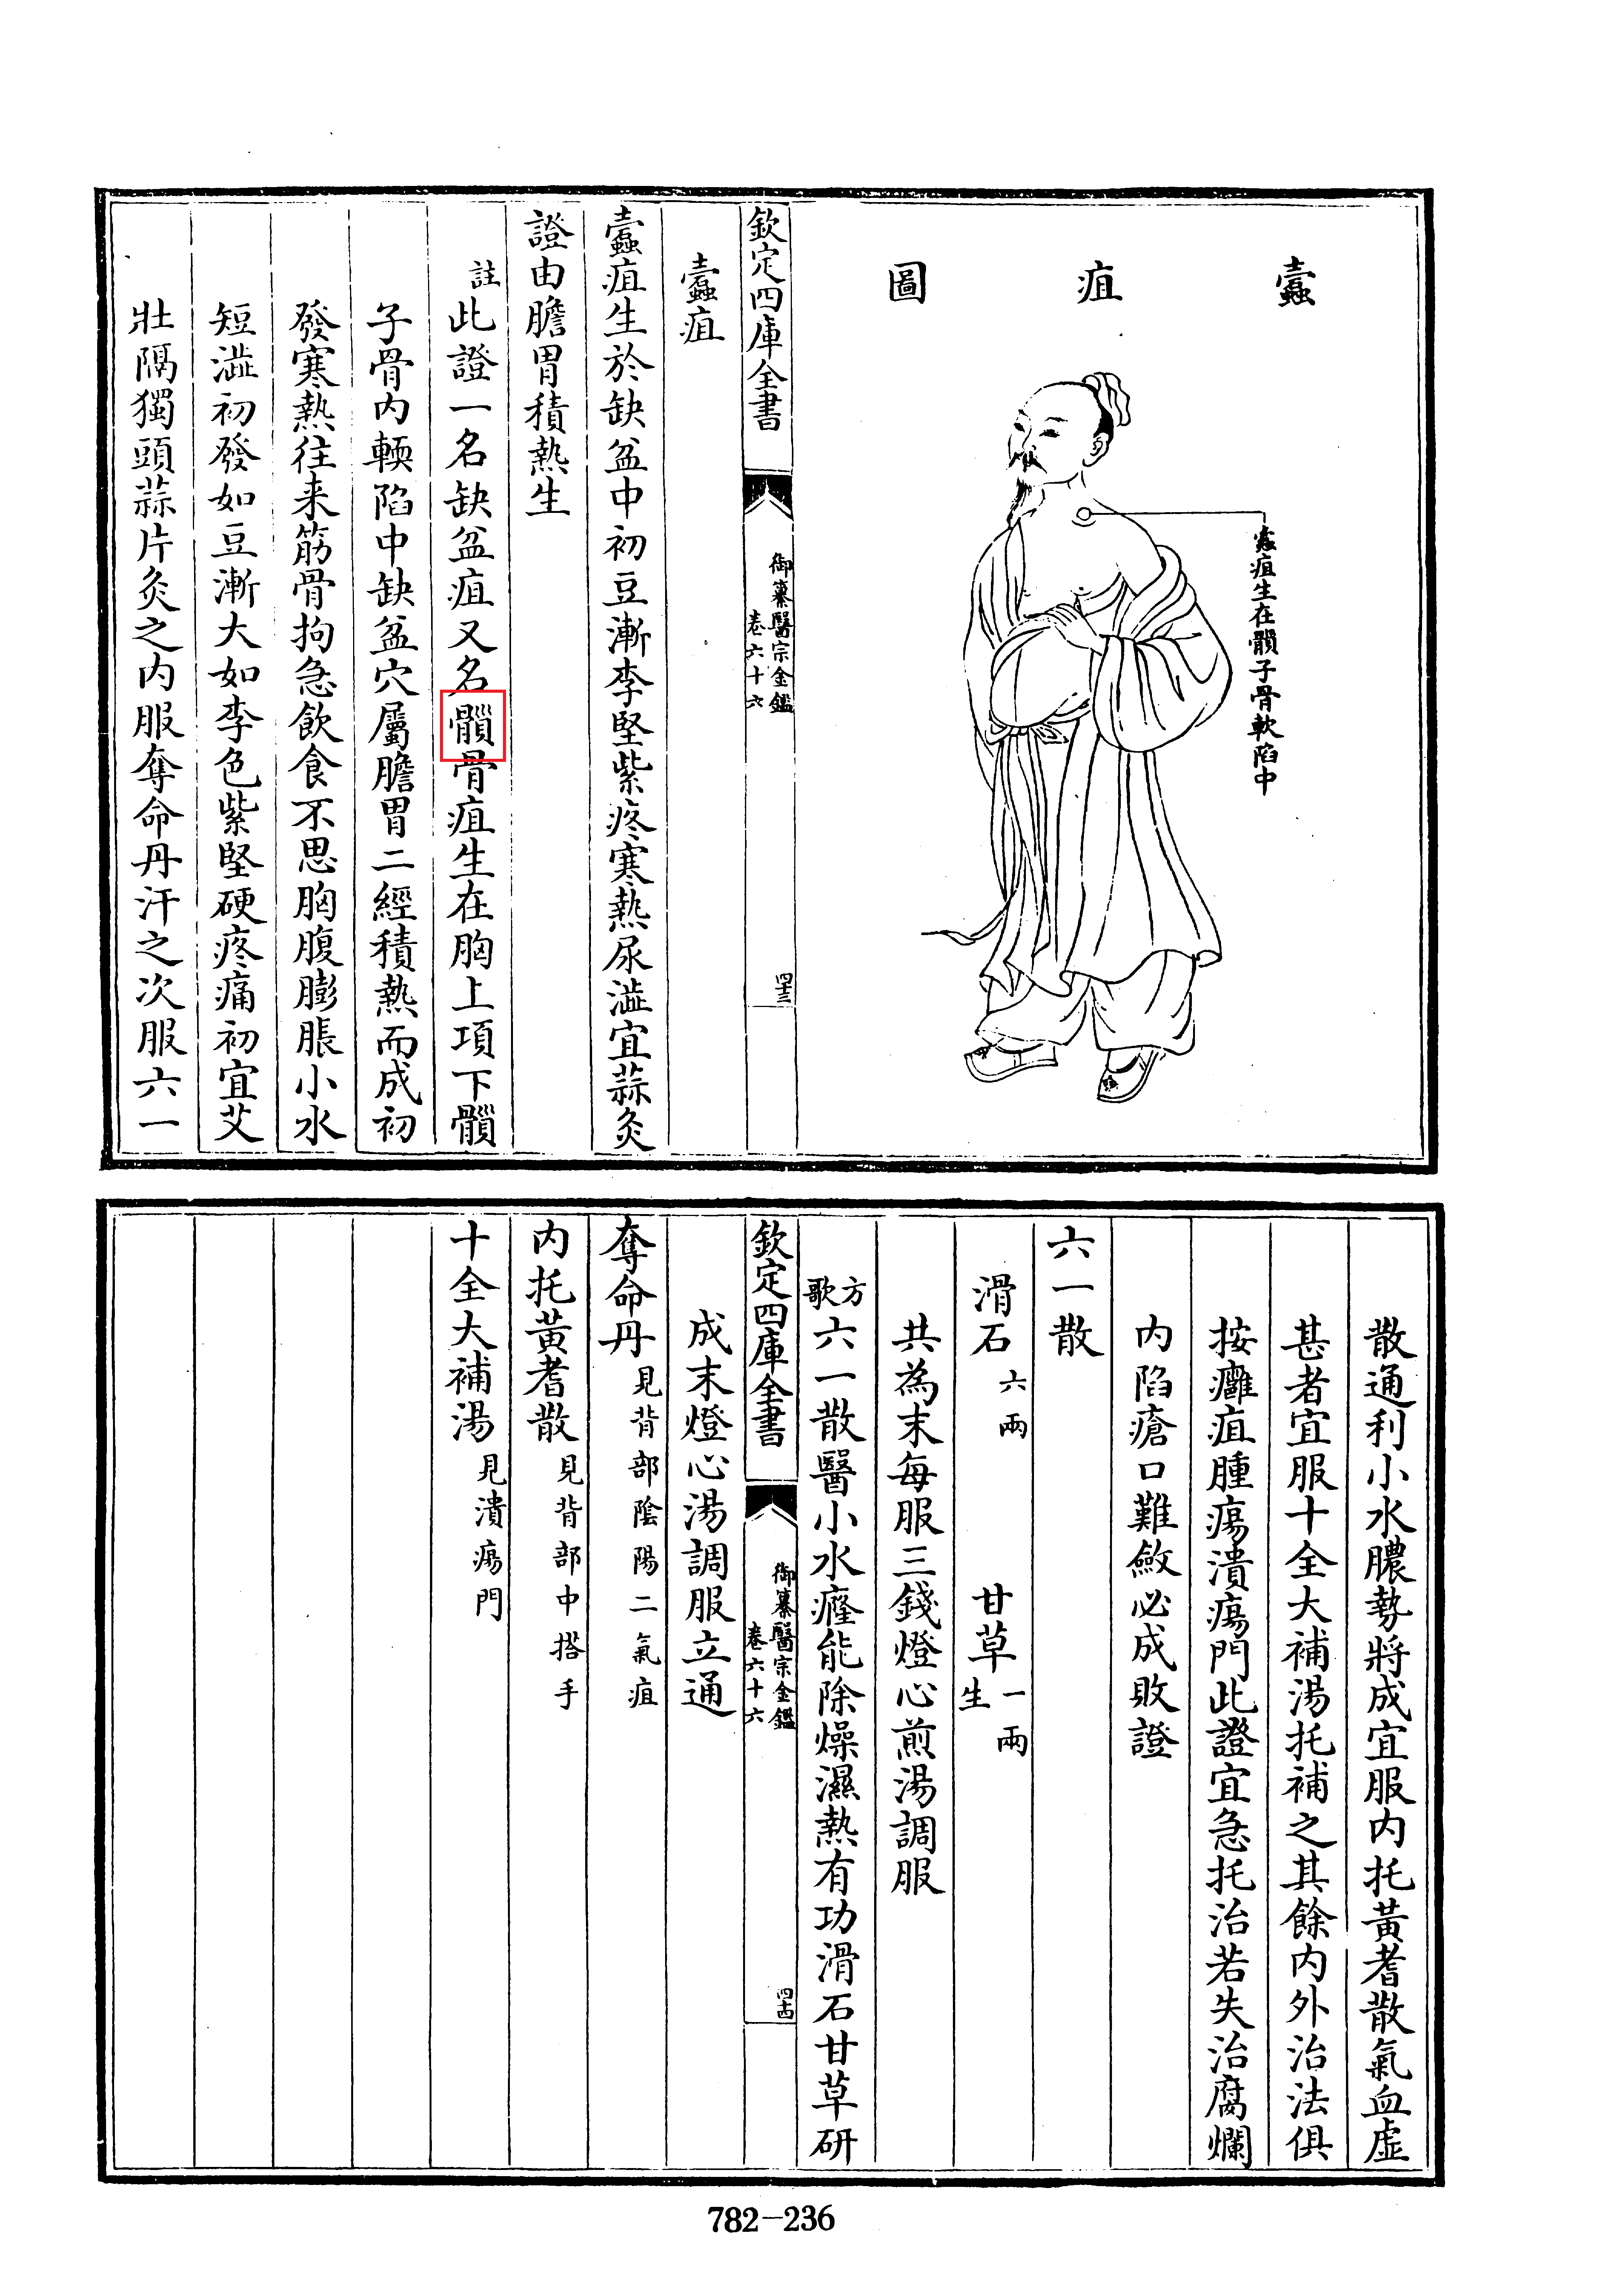 蠹疽圖
蠹疽生在子骨軟陷中
欽定四庫全書
御纂醫宗金鑑
卷六十六
四十三
蠹疽
蠹疽生於缺盆中初豆漸李堅紫疼寒熱尿澁宜蒜灸
證由膽胃積熱生
註此證一名缺盆疽又名骨疽生在胸上項下
子骨内輭陷中缺盆穴屬膽胃二經積熱而成初
發寒熱往来筋骨拘急飲食不思胸腹膨脹小水
短澁初發如豆漸大如李色紫堅硬疼痛初宜艾
壯隔獨頭蒜片灸之内服奪命丹汗之次服六一
散通利小水膿勢將成宜服内托黃耆散氣血虛
甚者宜服十全大補湯托補之其餘内外治法俱
按癰疽腫瘍潰瘍門此證宜急托治若失治腐爛
内陷瘡口難斂必成敗證
六一散
滑石六兩 甘草一兩生
共為末每服三錢燈心煎湯調服
方歌六一散醫小水癃能除燥濕熱有功滑石甘草研
欽定四庫全書
御纂醫宗金鑑
卷六十六
四十四
成末燈心湯調服立通
奪命丹見背部陰陽二氣疽
内托黃耆散見背部中搭手
十全大補湯見潰瘍門
782-236